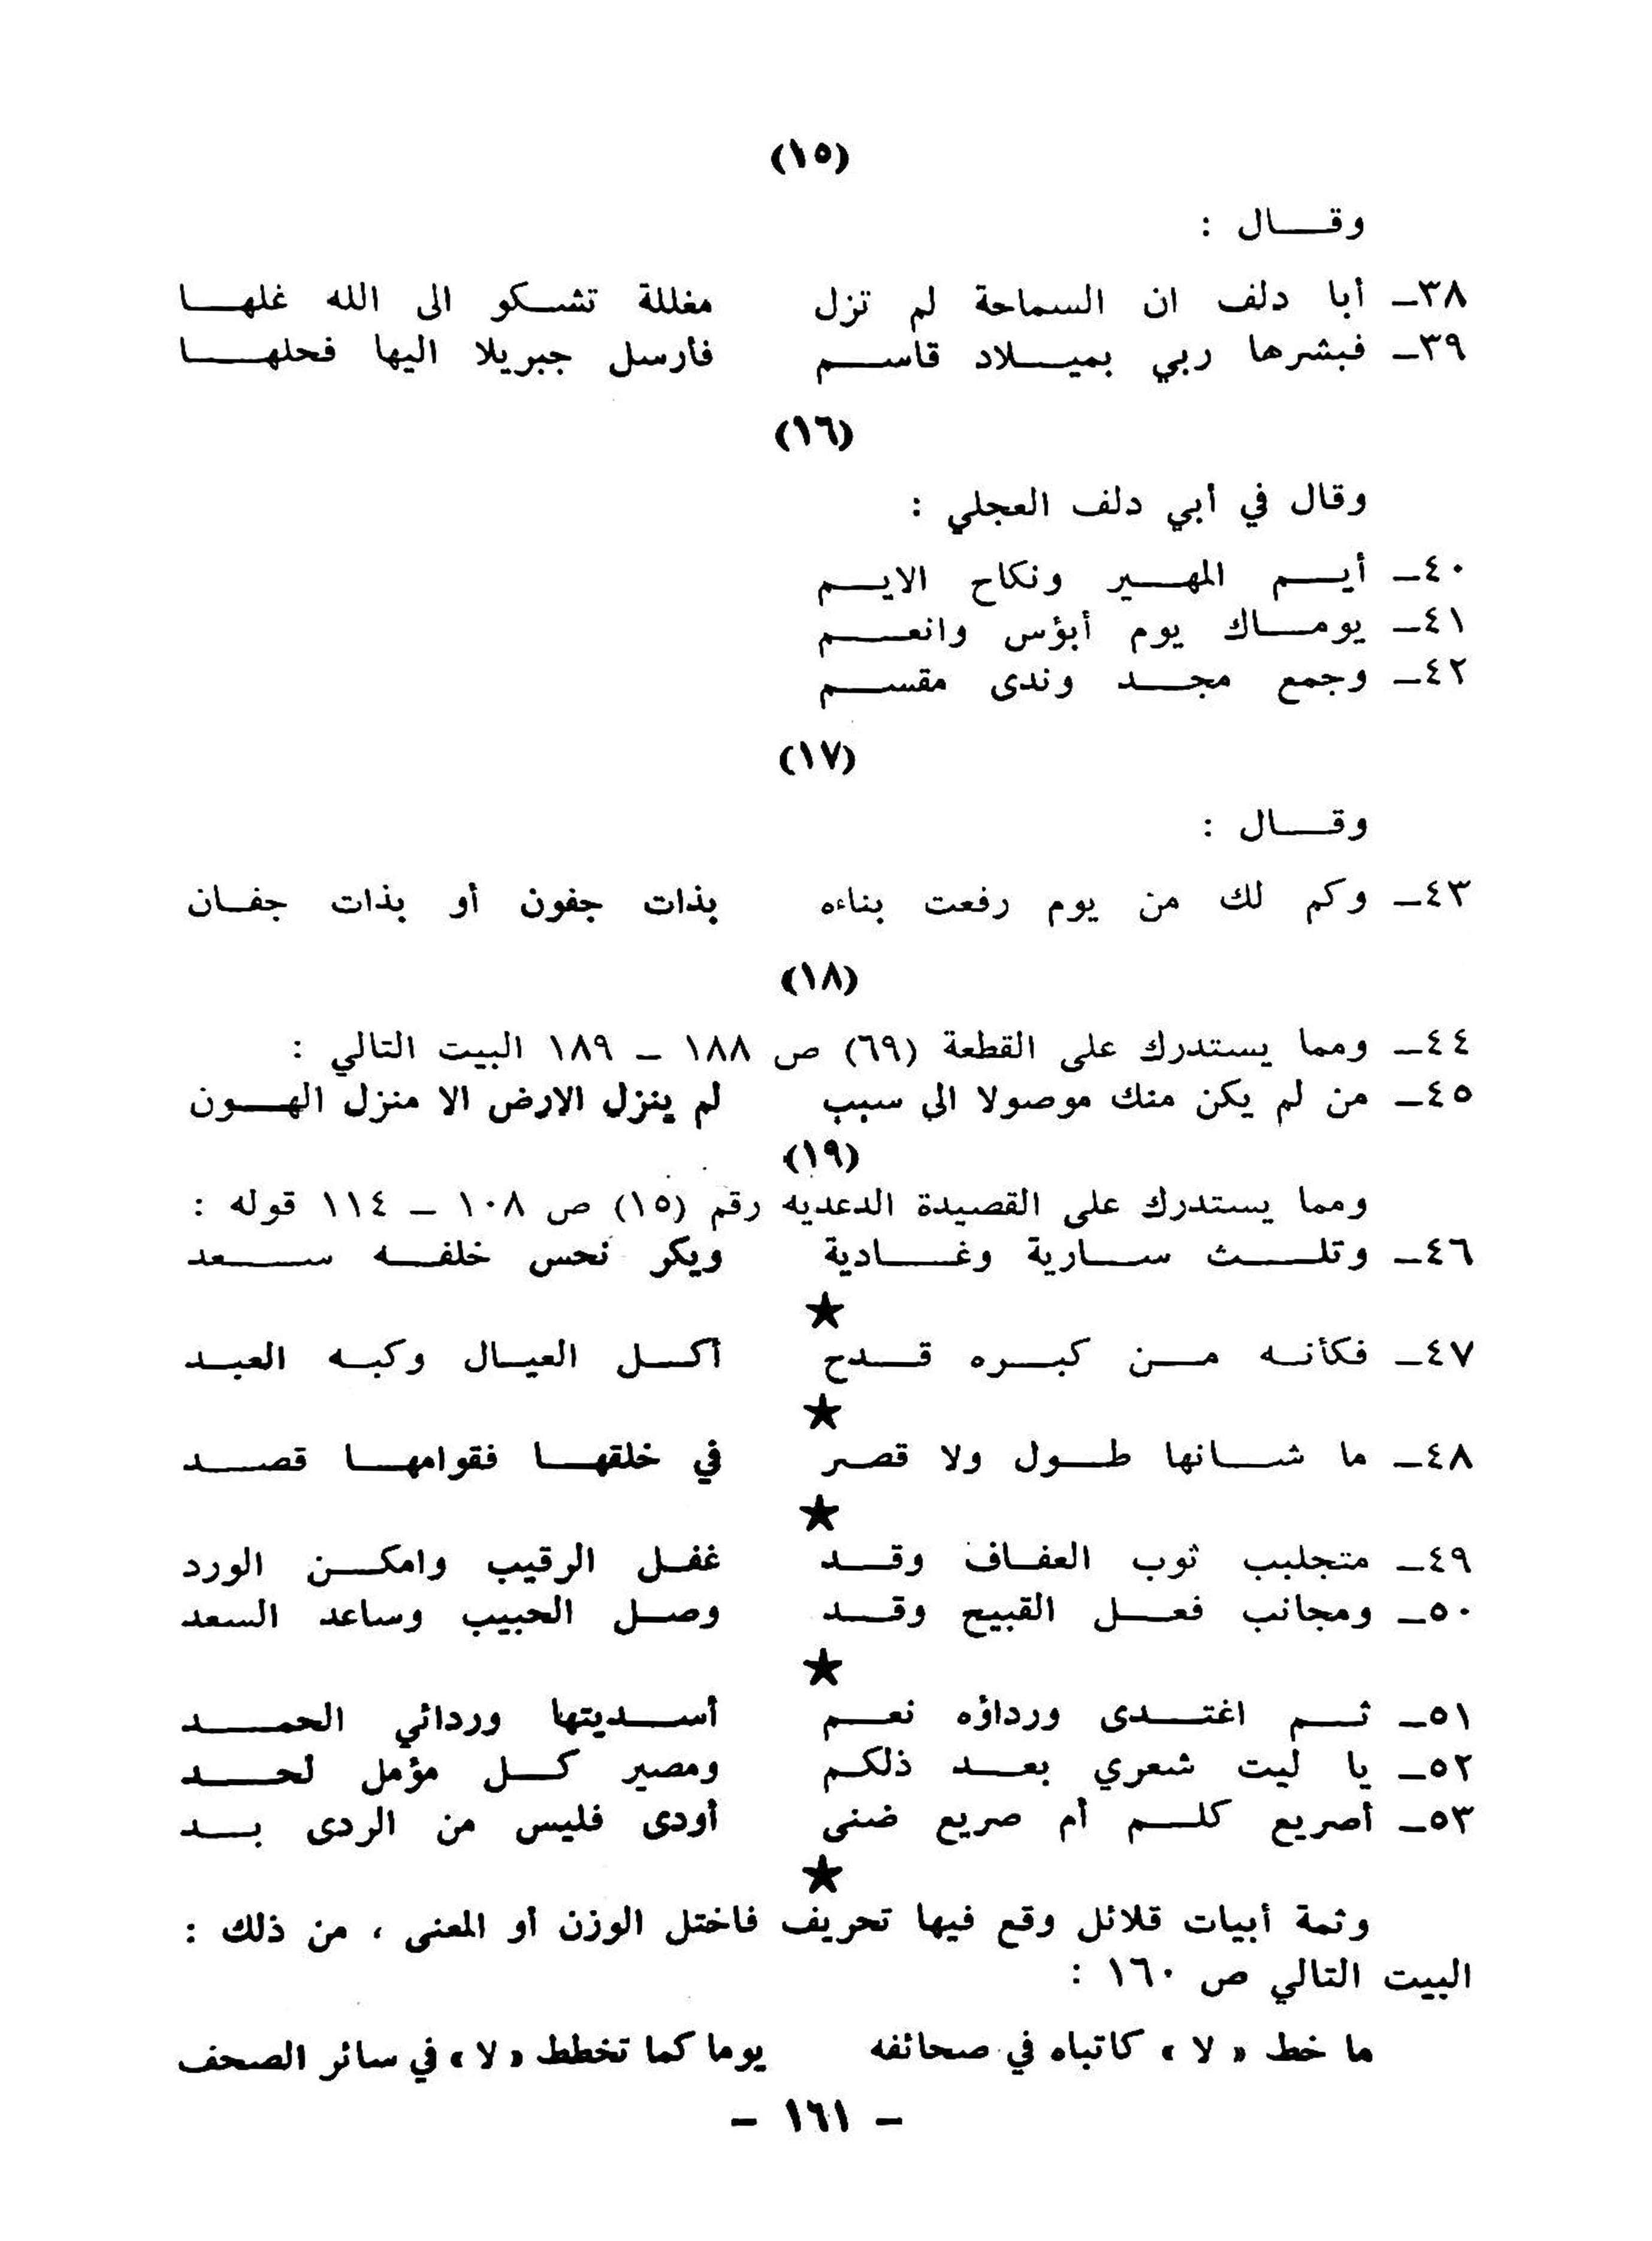 (١٥)
وقــال :
٣٨ـ أبا دلف ان السماحة لم تزل    مغللة تشكو الى الله غلها
٣٩ـ فبشرها ربي بميلاد قاسم    فأرسل جبريلا اليها فحلها
(١٦)
وقال في أبي دلف العجلي :
٤٠ـ أيم المهير ونكاح الايم
٤١ـ يوماك يوم أبؤس وانعم
٤٢ـ وجمع مجد وندى مقسم
(١٧)
وقــال :
٤٣ـ وكم لك من يوم رفعت بناءه    بذات جفون أو بذات جفان
(١٨)
٤٤ـ ومما يستدرك على القطعة (٦٩) ص ١٨٨ – ١٨٩ البيت التالي :
٤٥ـ من لم يكن منك موصولا الى سبب    لم ينزل الارض الا منزل الهون
(١٩)
ومما يستدرك على القصيدة الدعديه رقم (١٥) ص ١٠٨ – ١١٤ قوله :
٤٦ـ وتلث سارية وغادية    ويكر نحس خلفه سعد
★
٤٧ـ فكأنه من كبره قدح    أكل العيال وكبه العبد
★
٤٨ـ ما شانها طول ولا قصر    في خلقها فقوامها قصد
★
٤٩ـ متجلبب ثوب العفاف وقد    غفل الرقيب وامكن الورد
٥٠ـ ومجانب فعل القبيح وقد    وصل الحبيب وساعد السعد
★
٥١ـ ثم اغتدى ورداؤه نعم    أسديتها وردائي الحمد
٥٢ـ يا ليت شعري بعد ذلكم    ومصير كل مؤمل لحد
٥٣ـ أصريع كلم أم صريع ضنى    أودى فليس من الردى بد
★
وثمة أبيات قلائل وقع فيها تحريف فاختل الوزن أو المعنى ، من ذلك :
البيت التالي ص ١٦٠ :
ما خط « لا » كاتباه في صحائفه    يوما كما تخطط « لا » في سائر الصحف
– ١٦١ –